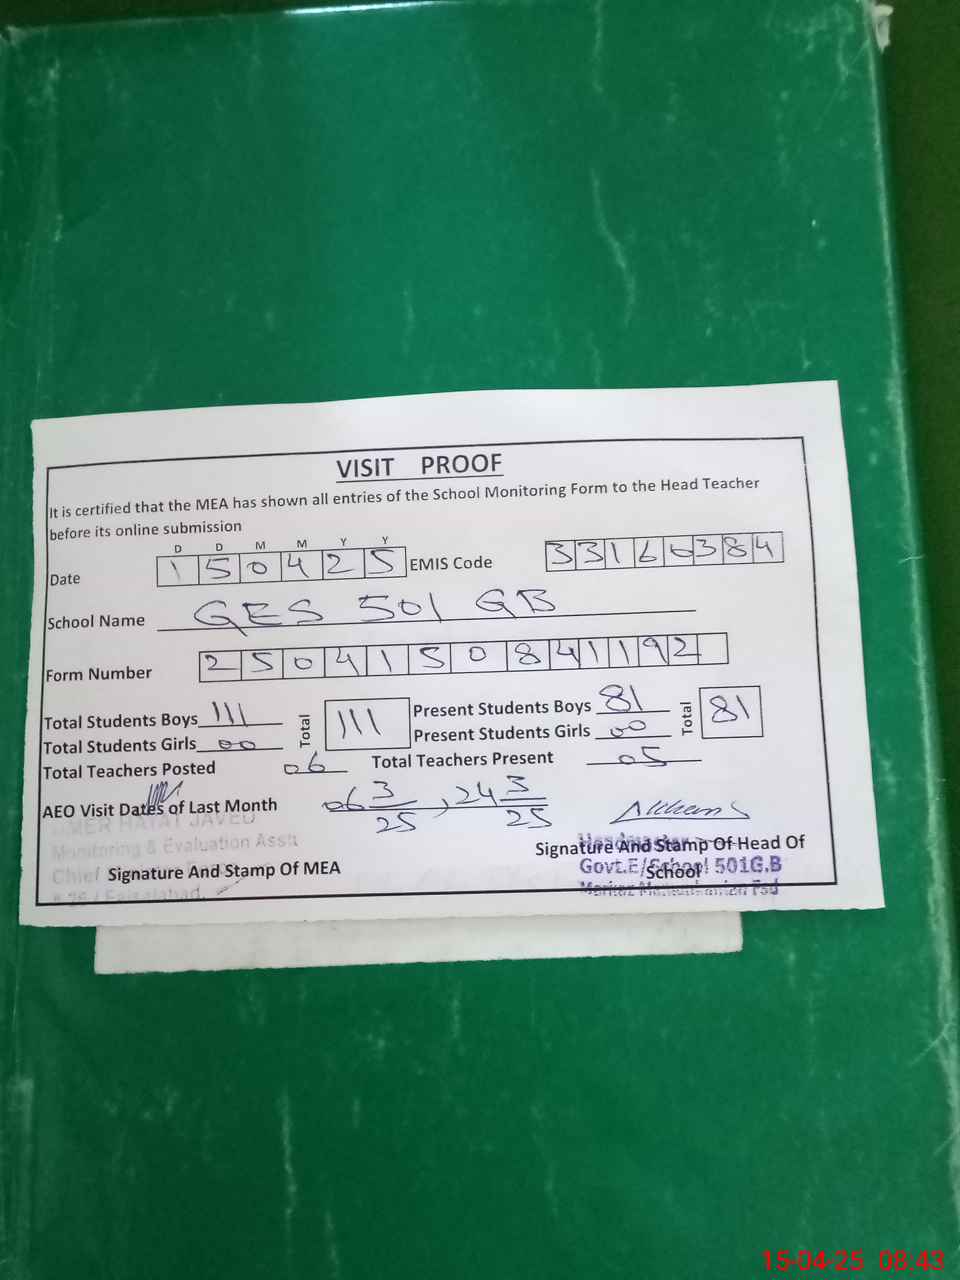 VISIT PROOF
It is certified that the MEA has shown all entries of the School Monitoring Form to the Head Teacher
before its online submission
D D M M Y Y
Date 1 5 0 4 2 5 EMIS Code 3 3 1 6 0 3 8 4
School Name GES 501 GB
Form Number 2 5 0 4 1 5 0 8 4 1 1 9 2
Total Students Boys 111 Total 111 Present Students Boys 81 Total 81
Total Students Girls 00 Present Students Girls 00
Total Teachers Posted 06 Total Teachers Present 05
AEO Visit Dates of Last Month 06 3/25, 24 3/25
HAYAT JAVED
Monitoring & Evaluation Asstt
Chief
Signature And Stamp Of MEA
Faisalabad.
Headmaster
Signature And Stamp Of Head Of
School
Govt.E/School 501G.B
Markaz Fsd
15-04-25 08:43